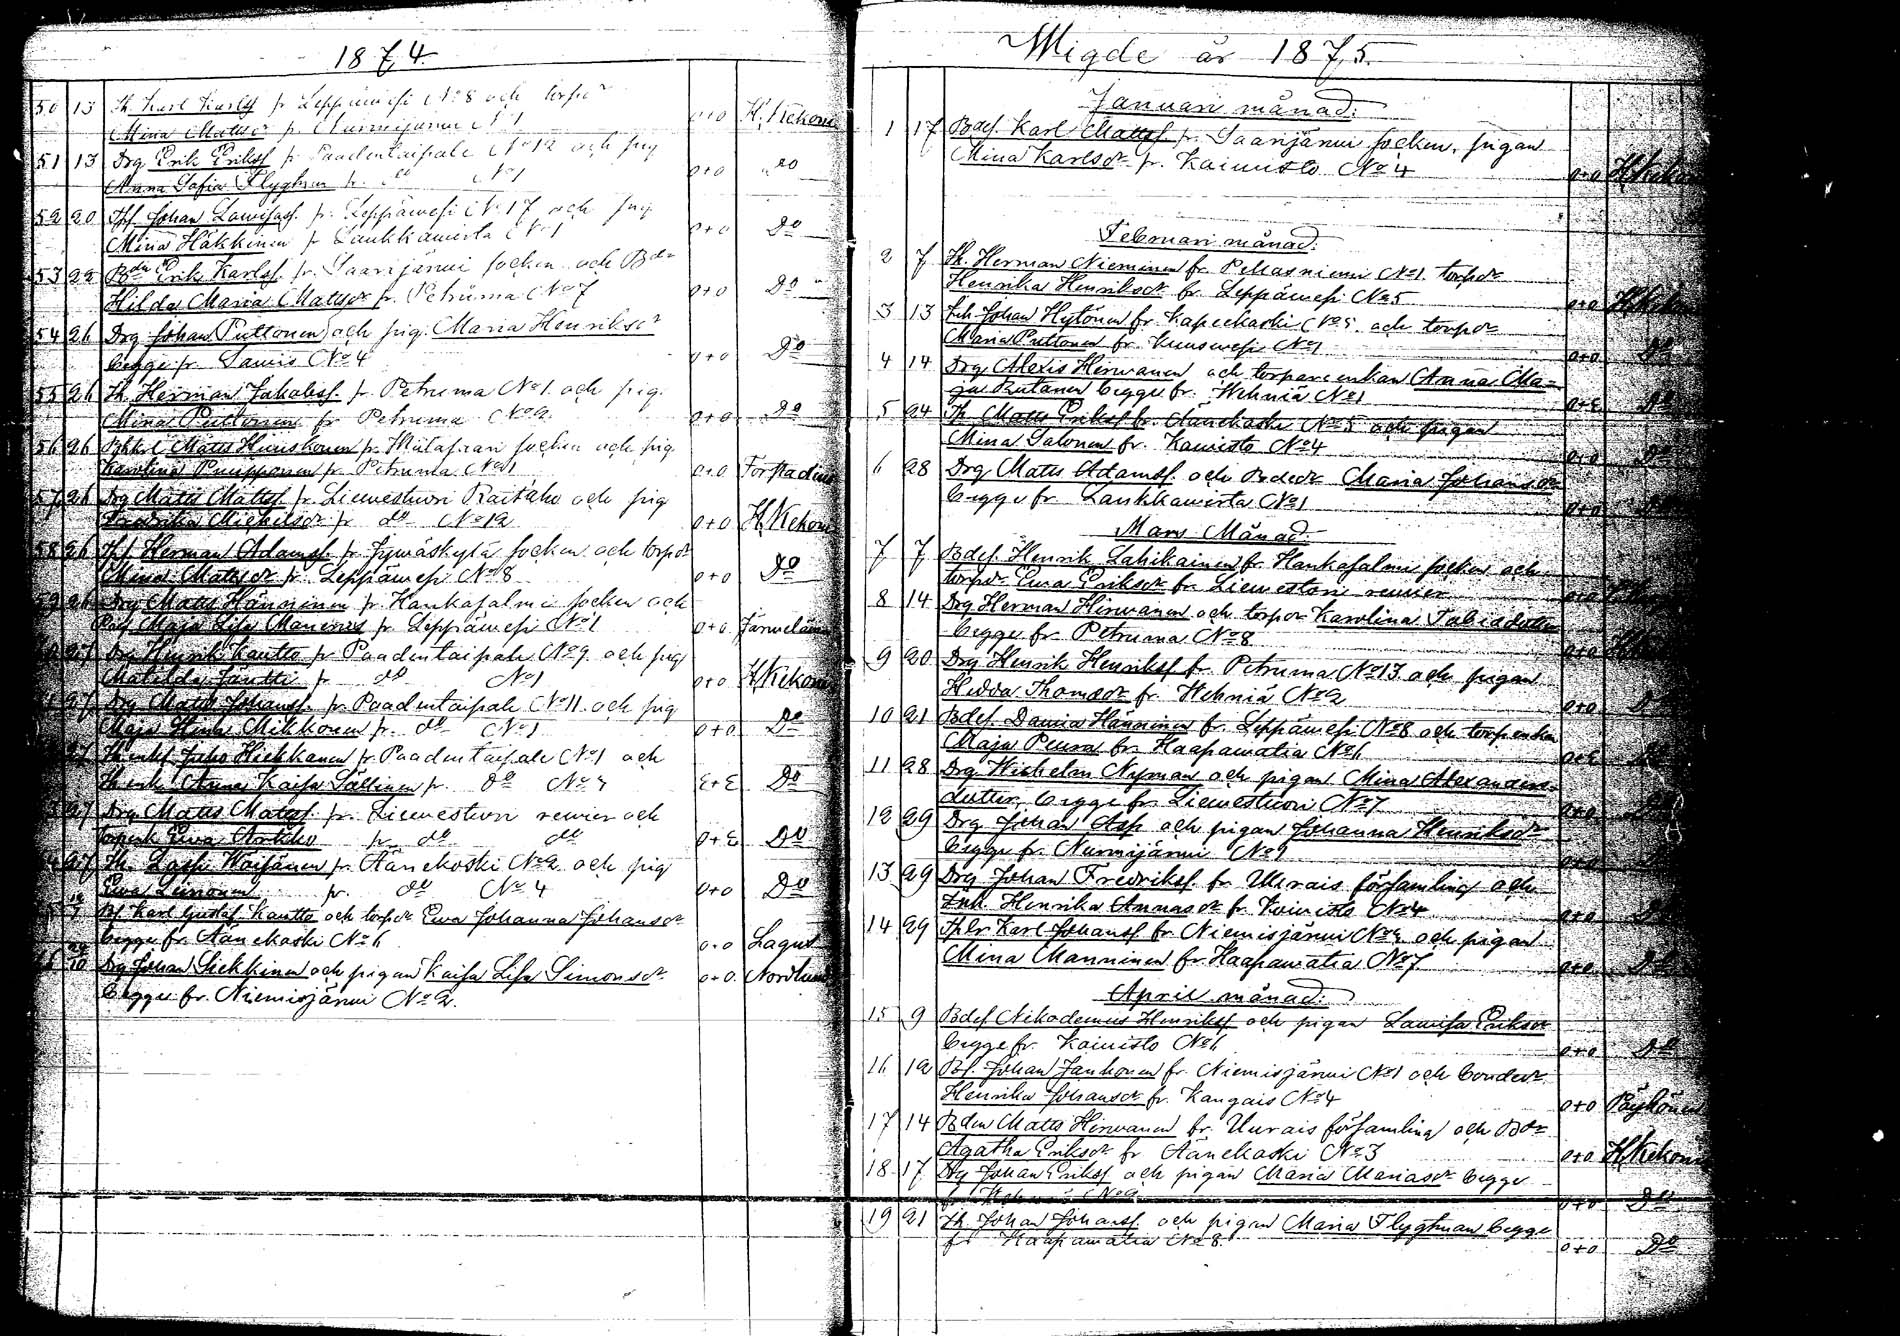 1874.
50 13 Th. Karl Karlss. fr. Leppäwesi No 8 och torpdr 0+0 H. Kekoni
Mina Mattsdr fr. Nurmijärwi No 1
51 13 Drg Erik Erikss. fr. Paadentaipale No 12 och pig 0+0 Do
Anna Sofia Flygtman fr. do No 1
52 20 Johan Lawisass. fr. Leppäwesi No 17 och pig 0+0 Do
Mina Häkkinen fr. Laukkawirta No 1
53 22 Bdn Erik Karlss. fr. Saarijärwi socken och Bdr 0+0 Do
Hilda Maria Mattsdr fr. Petruma No 7
54 26 Drg Johan Puttonen och pig. Maria Henriksdr 0+0 Do
begge fr. Lamis No 4
55 26 Th. Herman Jakobss. fr. Petruma No 1 och pig. 0+0 Do
Mina Puttonen fr. Petruma No 2
56 26 Matts Hinskonen fr. socken och pig 0+0 Forstadius
Karolina Paupponen fr. Petruma No 1
57 26 Drg Matts Mattss. fr. Liewestuori Raitaho och pig 0+0 H. Kekoni
Fredrika Mickelsdr fr. do No 12
58 26 Herman Adamss. fr. Jywäskylä socken och torpdr 0+0 Do
Mina Mattsdr fr. Leppäwesi No 8
59 26 Drg Matts Hänninen fr. Hankasalmi socken och 0+0 Järnelän
Maja Lisa Manernus fr. Leppäwesi No 1
27 Drg Henrik Kautto fr. Paadentaipale No 9 och pig 0+0 H. Kekoni
Matilda Jantti fr. do No 1
27 Drg Matts Johanss. fr. Paadentaipale No 11 och pig 0+0 Do
Maja Stina Mikkonen fr. do No 1
27 Juho Hickkanen fr. Paadentaipale No 1 och E+E Do
Anna Kaisa Sällinen fr. do No
27 Drg Matts Mattss. fr. Liewestuori rewier och 0+E Do
torpenk Ewa Arokho fr. do do
27 Th. Lass. Moisänen fr. Äänekoski No 2 och pig 0+0 Do
Ewa Liinonen fr. do No 4
Bs. Karl Gustaf Kautto och torpdr Ewa Johanna Johansdr 0+0 Lagus
begge fr. Äänekoski No 6
Drg Johan Siekkinen och pigan Kaisa Lisa Simonsdr 0+0 Nordlund
begge fr. Niemisjärwi No 2.
Wigde år 1875.
Januari månad.
1 17 Bdes. Karl Mattss. fr. Saarijärwi socken, pigan
Mina Karlsdr fr. Koiwisto No 4 0+0 H. Kekoni
Februari månad.
2 7 Th. Herman Nieminen fr. Pekasniemi No 1 torpdr
Henrika Henriksdr fr. Leppäwesi No 5 0+0 H. Kekoni
3 13 Johan Hytönen fr. Kapeekoski No 5 och torpdr
Maria Puttonen fr. Kuuswesi No 1 0+0 Do
4 14 Drg Alexis Hirwanen och torpareenkan Anna Ma-
ja Rutanen begge fr. Wehniä No 1 0+E Do
5 24 Th. Matts Erikss. fr. Äänekoski No 5 och pigan
Mina Salonen fr. Koiwisto No 4 0+0 Do
6 28 Drg Matts Adamss. och Bdedr Maria Johansdr
begge fr. Laukkawirta No 1 0+0 Do
Mars Månad.
7 7 Bdes. Henrik Lahikainen fr. Hankasalmi socken och
torpdr Ewa Eriksdr fr. Liewestuori rewier 0+0
8 14 Drg Herman Hirwanen och torpdr Karolina Tabiadotter
begge fr. Petruma No 8 0+0
9 20 Drg Henrik Henrikss. fr. Petruma No 13 och pigan
Hedda Thomasdr fr. Wehniä No 2 0+0 Do
10 21 Bdes. Hänninen fr. Leppäwesi No 8 och torpenkan
Maja Peura fr. Haapawatia No 6 0+E Do
11 28 Drg Wilhelm Nyman och pigan Mina Alexanders-
dotter, begge fr. Liewestuori No 7 0+0 Do
12 29 Drg Johan Asp och pigan Johanna Henriksdr
begge fr. Nurmijärwi No 1 0+0 Do
13 29 Drg Johan Fredrikss. fr. Uurais församling och
Enk. Henrika Annasdr fr. Koiwisto No 4 0+0 Do
14 29 Karl Johanss. fr. Niemisjärwi No 2 och pigan
Mina Manninen fr. Haapawatia No 7 0+0 Do
April månad.
15 9 Bdes. Nikodemus Henrikss. och pigan Lawisa Eriksdr
begge fr. Koiwisto No 6 0+0 Do
16 12 Bs. Johan Janhonen fr. Niemisjärwi No 1 och bondedr
Henrika Johansdr fr. Kangais No 4 0+0 Päyhönen
17 14 Bden Matts Hirwanen fr. Uurais församling och Bdr
Agatha Eriksdr fr. Äänekoski No 3 0+0 H. Kekoni
18 17 Drg Johan Erikss. och pigan Maria Mariasdr begge
fr. Wehniä No 2 0+0 Do
19 21 Th. Johan Johanss. och pigan Maria Flygtman begge
fr. Haapawatia No 8. 0+0 Do